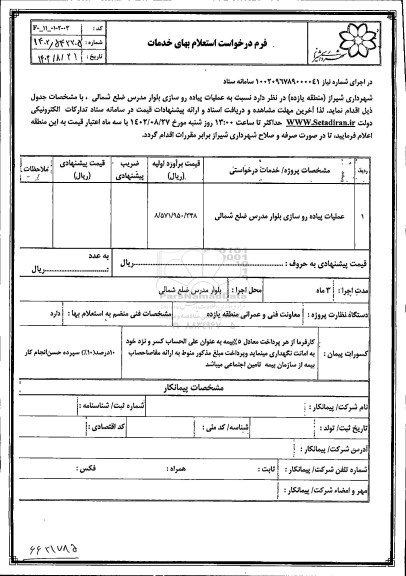 فرم درخواست استعلام بهای خدمات
کد :
شماره :
تاریخ : ۱۴۰۲/۸/۲۱
در اجرای شماره نیاز ۱۰۰۲۰۹۶۷۸۹۰۰۰۰۴۱ سامانه ستاد
شهرداری شیراز (منطقه یازده) در نظر دارد نسبت به عملیات پیاده رو سازی بلوار مدرس ضلع شمالی ، با مشخصات جدول
ذیل اقدام نماید. لذا آخرین مهلت مشاهده و دریافت اسناد و ارائه پیشنهادات قیمت در سامانه ستاد تدارکات الکترونیکی
دولت WWW.Setadiran.ir حداکثر تا ساعت ۱۳:۰۰ روز شنبه مورخ ۱۴۰۲/۰۸/۲۷ با سه ماه اعتبار قیمت به این منطقه
اعلام فرمایید، تا در صورت صرفه و صلاح شهرداری شیراز برابر مقررات اقدام گردد.
ردیف
مشخصات پروژه/ خدمات درخواستی
قیمت برآورد اولیه (ریال)
ضریب پیشنهادی
قیمت پیشنهادی (ریال)
ملاحظات
۱
عملیات پیاده رو سازی بلوار مدرس ضلع شمالی
۸/۵۷۱/۹۵۰/۲۳۸
قیمت پیشنهادی به حروف : ریال
به عدد : ریال
مدت اجرا : ۳ ماه
محل اجرا : بلوار مدرس ضلع شمالی
دستگاه نظارت پروژه : معاونت فنی و عمرانی منطقه یازده
مشخصات فنی منضم به استعلام بها : دارد
کسورات پیمان :
کارفرما از هر پرداخت معادل ۵٪ بیمه به عنوان علی الحساب کسر و نزد خود
به امانت نگهداری مینماید وپرداخت مبلغ مذکور منوط به ارائه مفاصاحساب
بیمه از سازمان بیمه تامین اجتماعی میباشد
۱۰درصد(۱۰٪) سپرده حسن انجام کار
مشخصات پیمانکار
نام شرکت/ پیمانکار :
شماره ثبت/ شناسنامه :
تاریخ ثبت/ تولد :
شناسه/ کد ملی :
کد اقتصادی :
آدرس شرکت/ پیمانکار :
شماره تلفن شرکت/ پیمانکار :
ثابت :
همراه :
فکس :
مهر و امضاء شرکت/ پیمانکار :